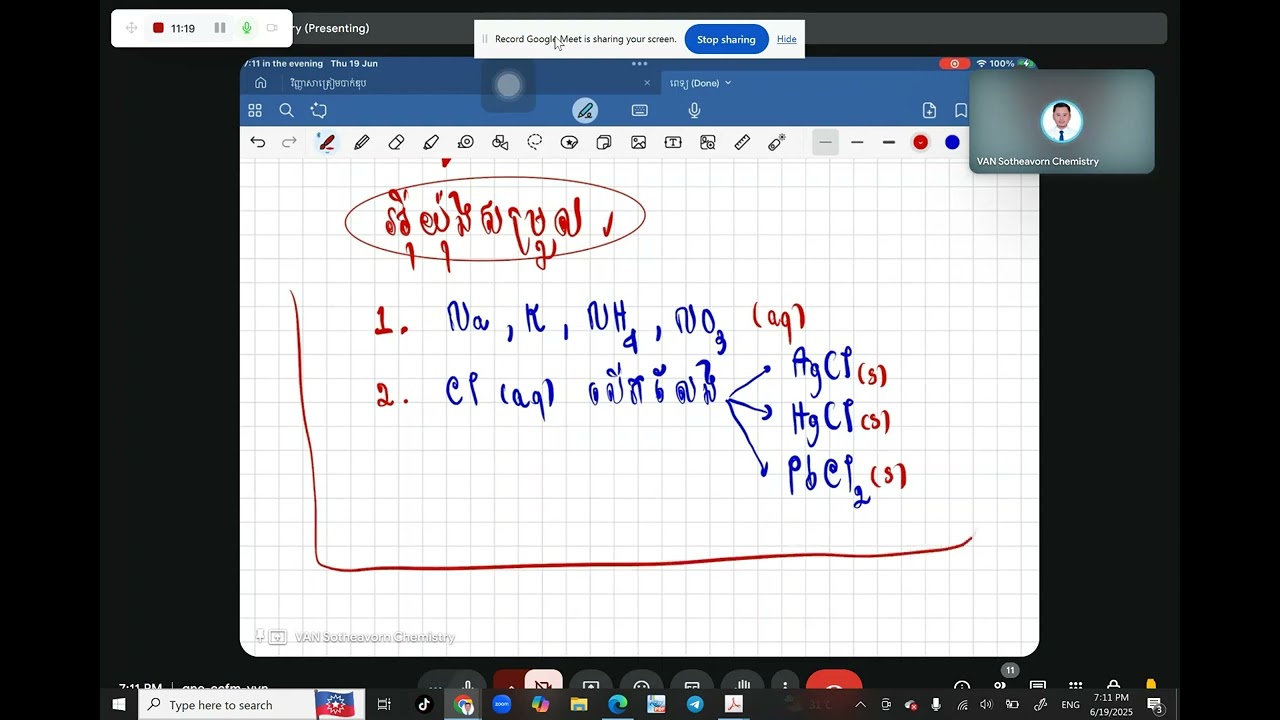 11:19
ry (Presenting)
Record Google Meet is sharing your screen. Stop sharing Hide
7:11 in the evening Thu 19 Jun
100%
វិញ្ញាសាត្រៀមបាក់ឌុប
ពេទ្យ (Done)
VAN Sotheavorn Chemistry
1. Na, K, NH4, NO3 (aq)
2. Cl (aq) លើកលែង
AgCl (s)
HgCl (s)
PbCl2 (s)
VAN Sotheavorn Chemistry
11
7:11 PM
Type here to search
zoom
31°C
ENG
7:11 PM
6/19/2025
3